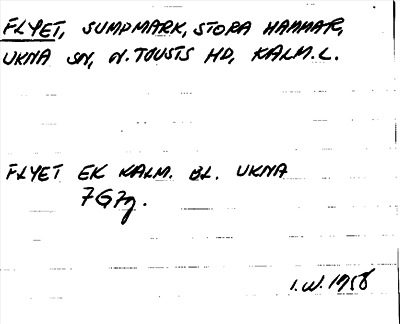 FLYET, SUMPMARK, STORA HAMMAR,
UKNA SN, N. TJUSTS HD, KALM. L.
FLYET EK KALM. BL. UKNA
7G7g.
I.W. 1958